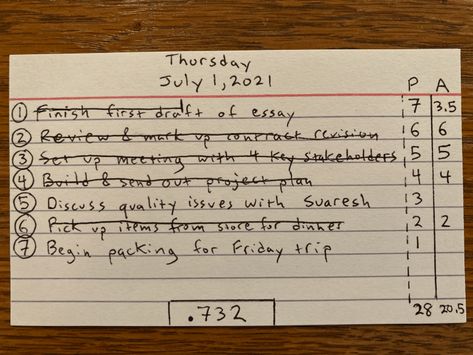 Thursday
July 1, 2021
P A
① Finish first draft of essay 7 3.5
② Review & mark up contract revision 6 6
③ Set up meeting with 4 key stakeholders 5 5
④ Build & send out project plan 4 4
⑤ Discuss quality issues with Suaresh 3
⑥ Pick up items from store for dinner 2 2
⑦ Begin packing for Friday trip 1
.732 28 20.5